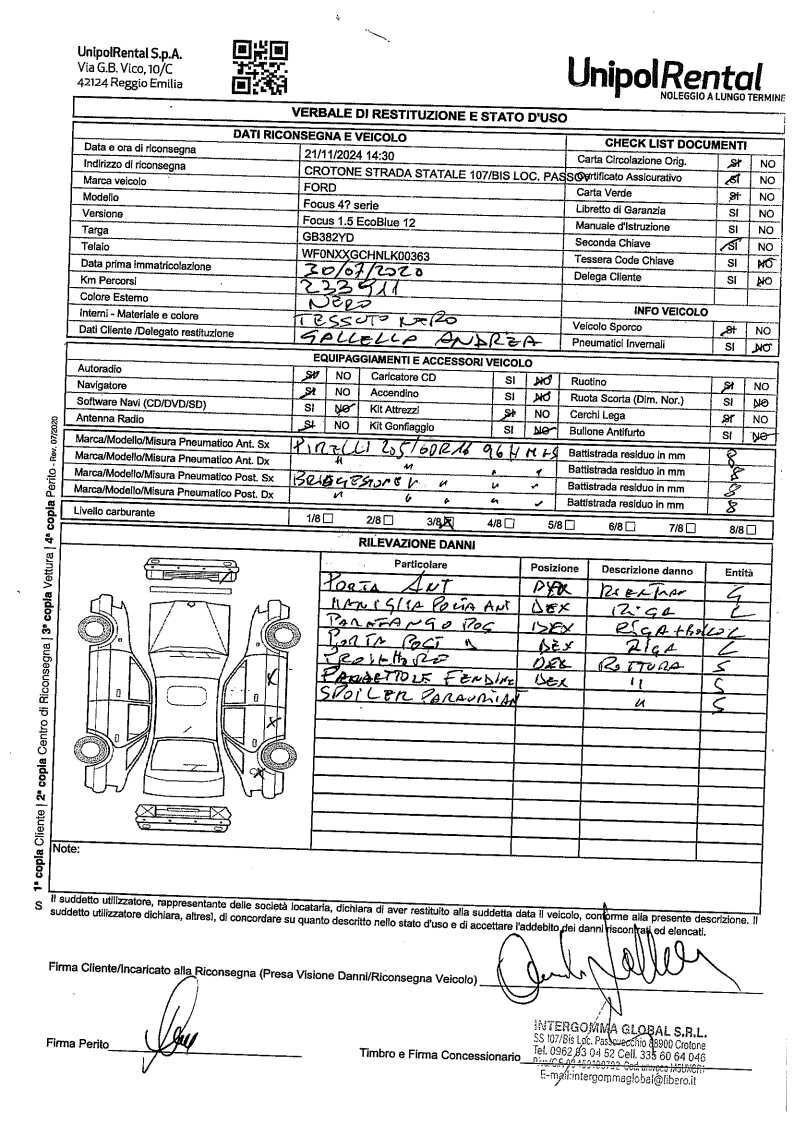 UnipolRental S.p.A.
Via G.B. Vico, 10/C
42124 Reggio Emilia
UnipolRental
NOLEGGIO A LUNGO TERMINE
VERBALE DI RESTITUZIONE E STATO D'USO
DATI RICONSEGNA E VEICOLO
Data e ora di riconsegna 21/11/2024 14:30
Indirizzo di riconsegna CROTONE STRADA STATALE 107/BIS LOC. PASSOV
Marca veicolo FORD
Modello Focus 4? serie
Versione Focus 1.5 EcoBlue 12
Targa GB382YD
Telaio WF0NXXGCHNLK00363
Data prima immatricolazione 30/07/2020
Km Percorsi 233911
Colore Esterno NERO
Interni - Materiale e colore TESSUTO NERO
Dati Cliente /Delegato restituzione GALLELLA ANDREA
CHECK LIST DOCUMENTI
Carta Circolazione Orig. SI NO
Certificato Assicurativo SI NO
Carta Verde SI NO
Libretto di Garanzia SI NO
Manuale d'Istruzione SI NO
Seconda Chiave SI NO
Tessera Code Chiave SI NO
Delega Cliente SI NO
INFO VEICOLO
Veicolo Sporco SI NO
Pneumatici Invernali SI NO
EQUIPAGGIAMENTI E ACCESSORI VEICOLO
Autoradio SI NO Caricatore CD SI NO Ruotino SI NO
Navigatore SI NO Accendino SI NO Ruota Scorta (Dim. Nor.) SI NO
Software Navi (CD/DVD/SD) SI NO Kit Attrezzi SI NO Cerchi Lega SI NO
Antenna Radio SI NO Kit Gonfiaggio SI NO Bullone Antifurto SI NO
Marca/Modello/Misura Pneumatico Ant. Sx PIRELLI 205/60R16 96H M+S Battistrada residuo in mm 8
Marca/Modello/Misura Pneumatico Ant. Dx " " " " Battistrada residuo in mm 8
Marca/Modello/Misura Pneumatico Post. Sx Battistrada residuo in mm 8
Marca/Modello/Misura Pneumatico Post. Dx " " " " Battistrada residuo in mm 8
Livello carburante 1/8 2/8 3/8 4/8 5/8 6/8 7/8 8/8
RILEVAZIONE DANNI
Particolare Posizione Descrizione danno Entità
PORTA ANT DEX G
MANIGLIA PORTA ANT DEX RIGA L
PARAFANGO POS DEX L
PORTA POST DEX RIGA L
ROTTURA S
FENDINE DEX " S
SPOILER " S
Note:
Il suddetto utilizzatore, rappresentante delle società locataria, dichiara di aver restituito alla suddetta data il veicolo, conforme alla presente descrizione. Il
suddetto utilizzatore dichiara, altresì, di concordare su quanto descritto nello stato d'uso e di accettare l'addebito dei danni riscontrati ed elencati.
Firma Cliente/Incaricato alla Riconsegna (Presa Visione Danni/Riconsegna Veicolo)
Firma Perito
Timbro e Firma Concessionario
INTERGOMMA GLOBAL S.R.L.
SS 107/Bis Loc. Passovecchio 88900 Crotone
Tel. 0962 93 04 52 Cell. 335 60 64 046
E-mail:intergommaglobal@libero.it
S 1ª copia Cliente | 2ª copia Centro di Riconsegna | 3ª copia Vettura | 4ª copia Perito - Rev. 07/2020